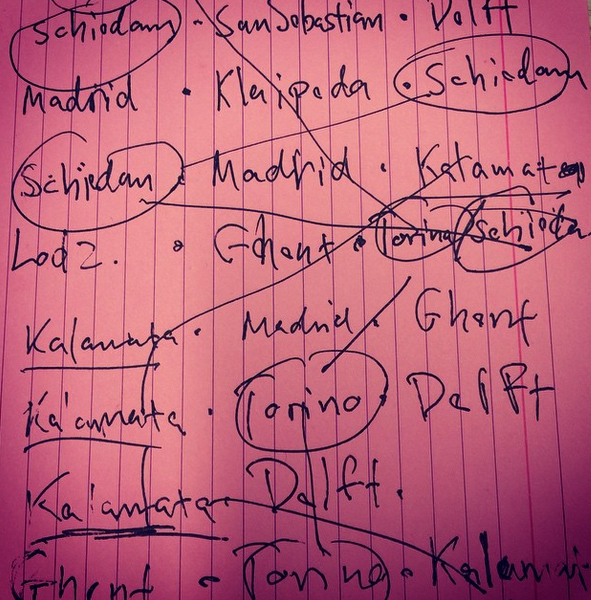 Schiedam · San Sebastian · Delft
Madrid · Klaipeda · Schiedam
Schiedam · Madrid · Katamata
Lodz. · Ghent · Torino Schieda
Kalamata · Madrid · Ghent
Ka'amata · Torino · Delft
Ka'amata Delft.
Ghent · Torino · Kalama